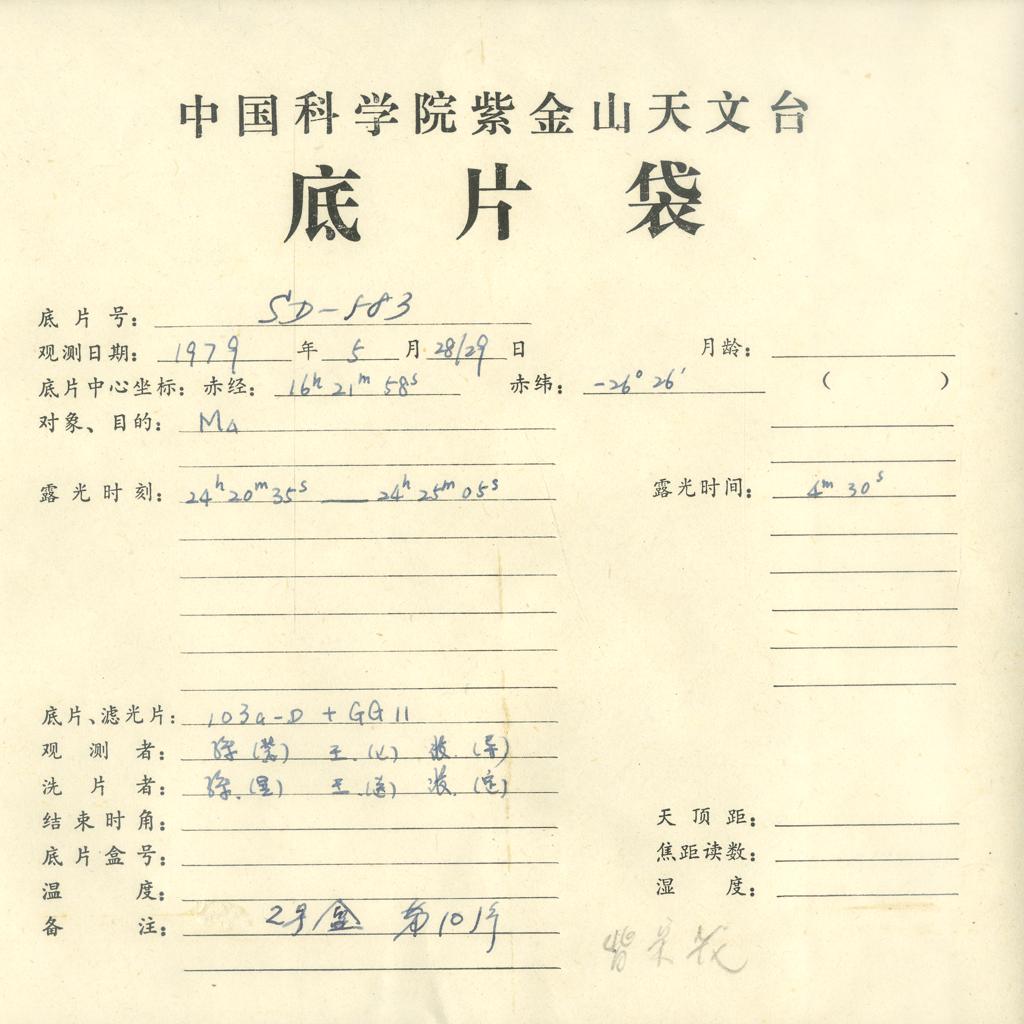 中国科学院紫金山天文台
底片袋
底片号: SD-583
观测日期: 1979年 5月 28/29日 月龄:
底片中心坐标: 赤经: 16h 21m 58s 赤纬: -26° 26′ ( )
对象、目的: M4
露光时刻: 24h 20m 35s — 24h 25m 05s 露光时间: 4m 30s
底片、滤光片: 103a-D + GG11
观测者: 王
洗片者: 王
结束时角: 天顶距:
底片盒号: 焦距读数:
温度: 湿度:
备注: 2号盒 第10片